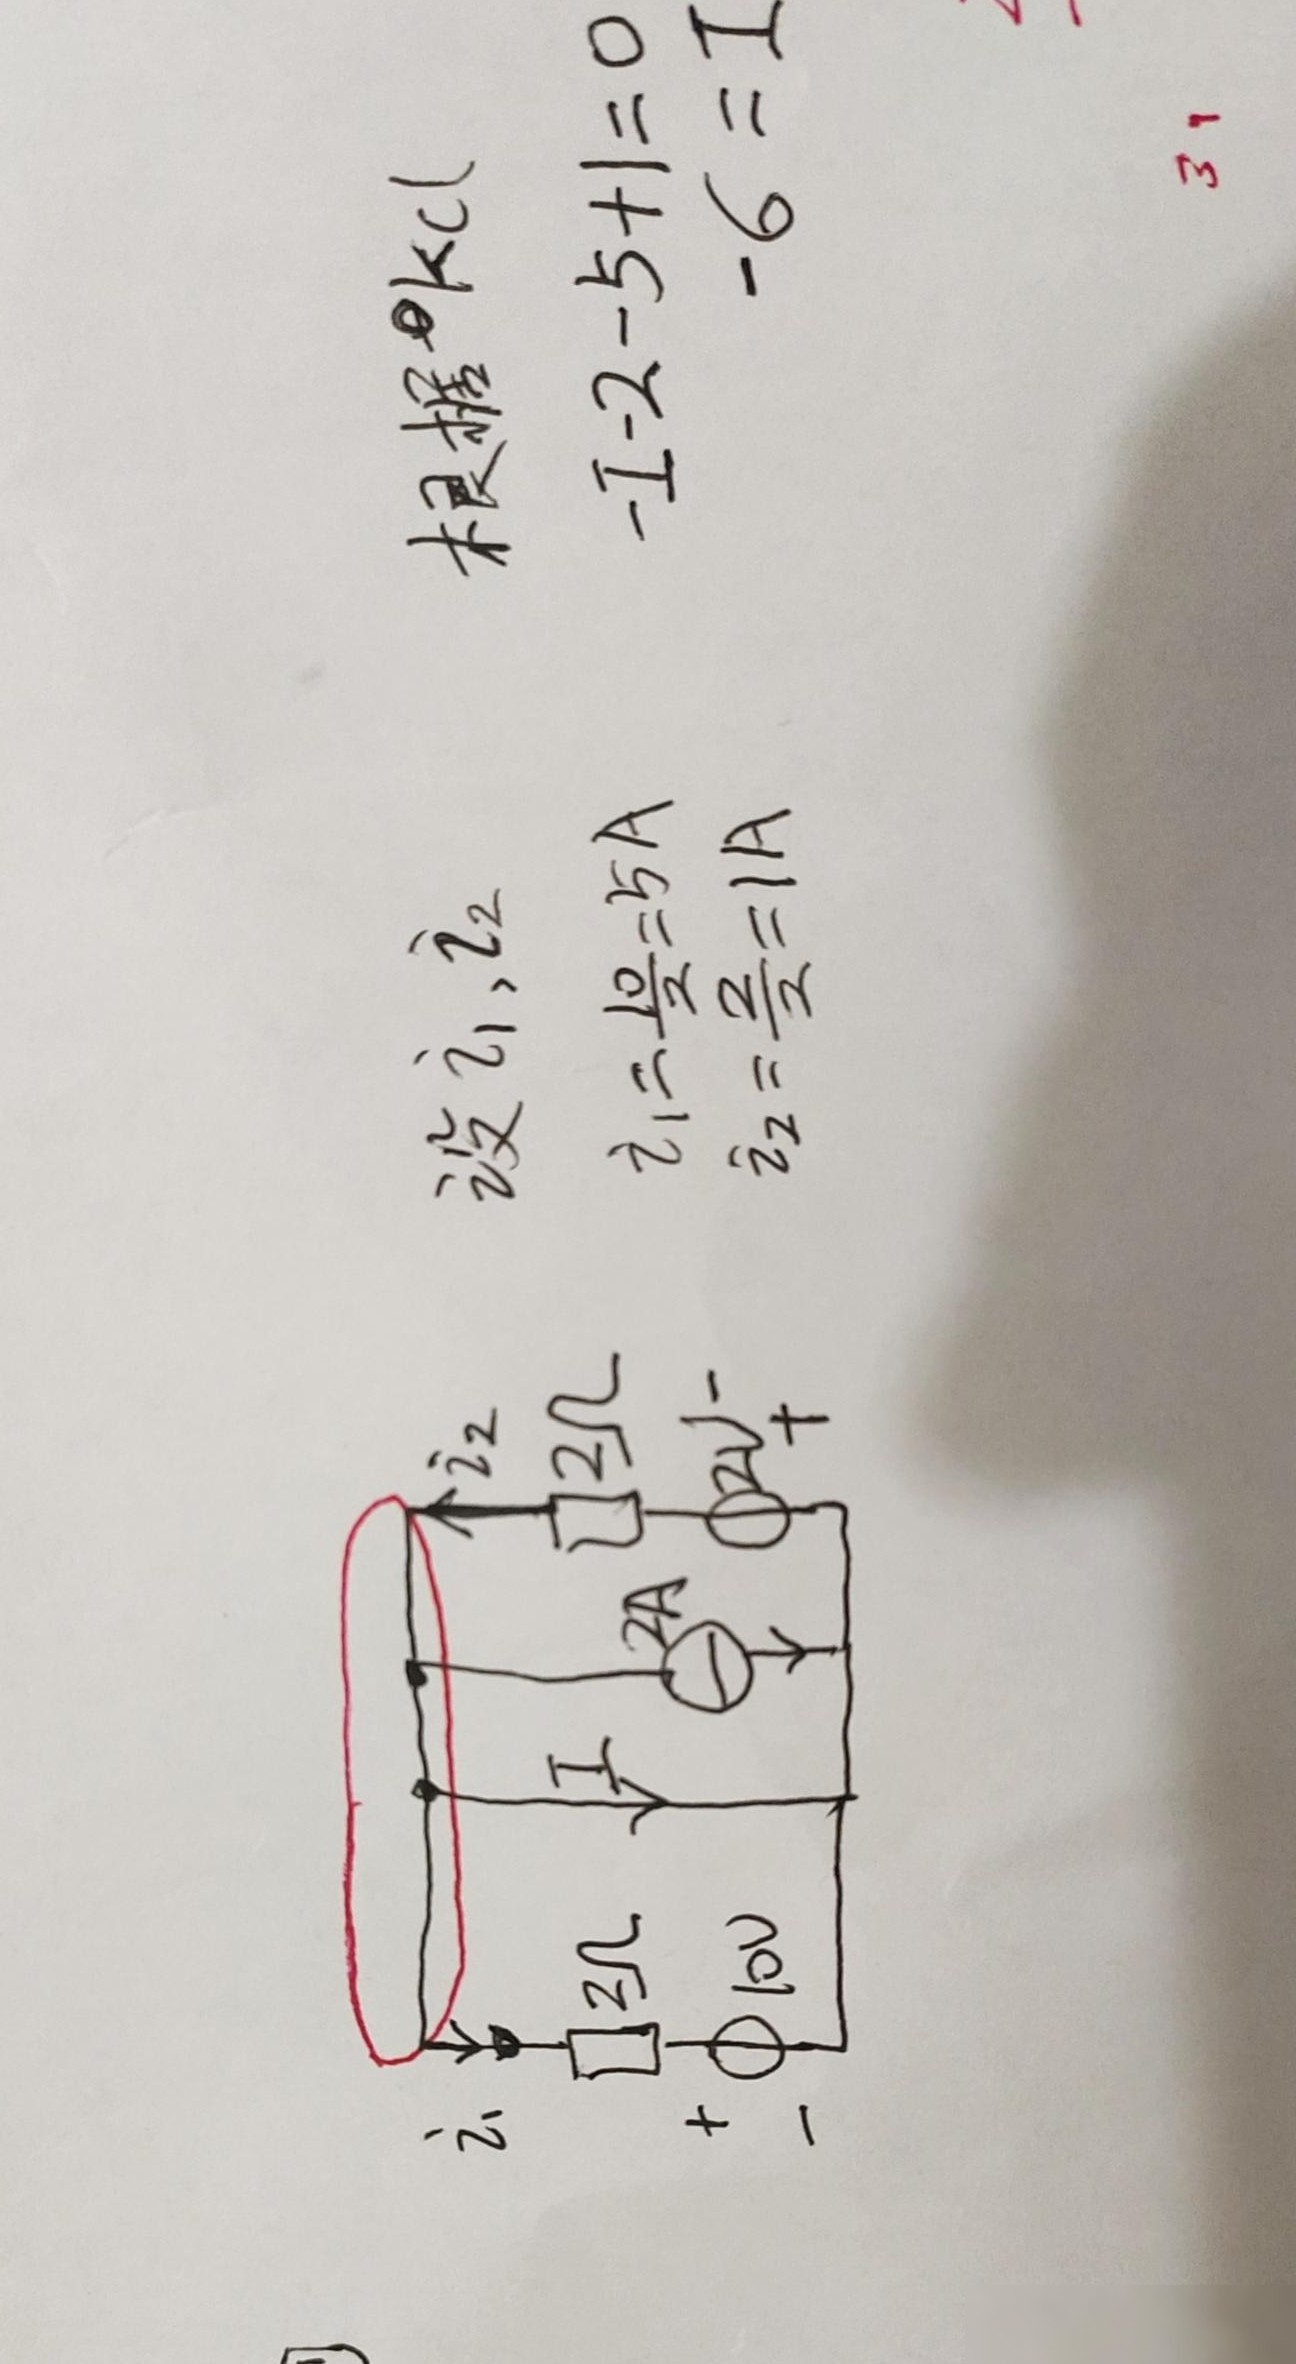 i₁
2Ω
+
10V
-
I
2A
i₂
2Ω
2V
-
+
设 i₁, i₂
i₁ = 10/2 = 5A
i₂ = 2/2 = 1A
根据 KCl
-I-2-5+1=0
-6 = I
31